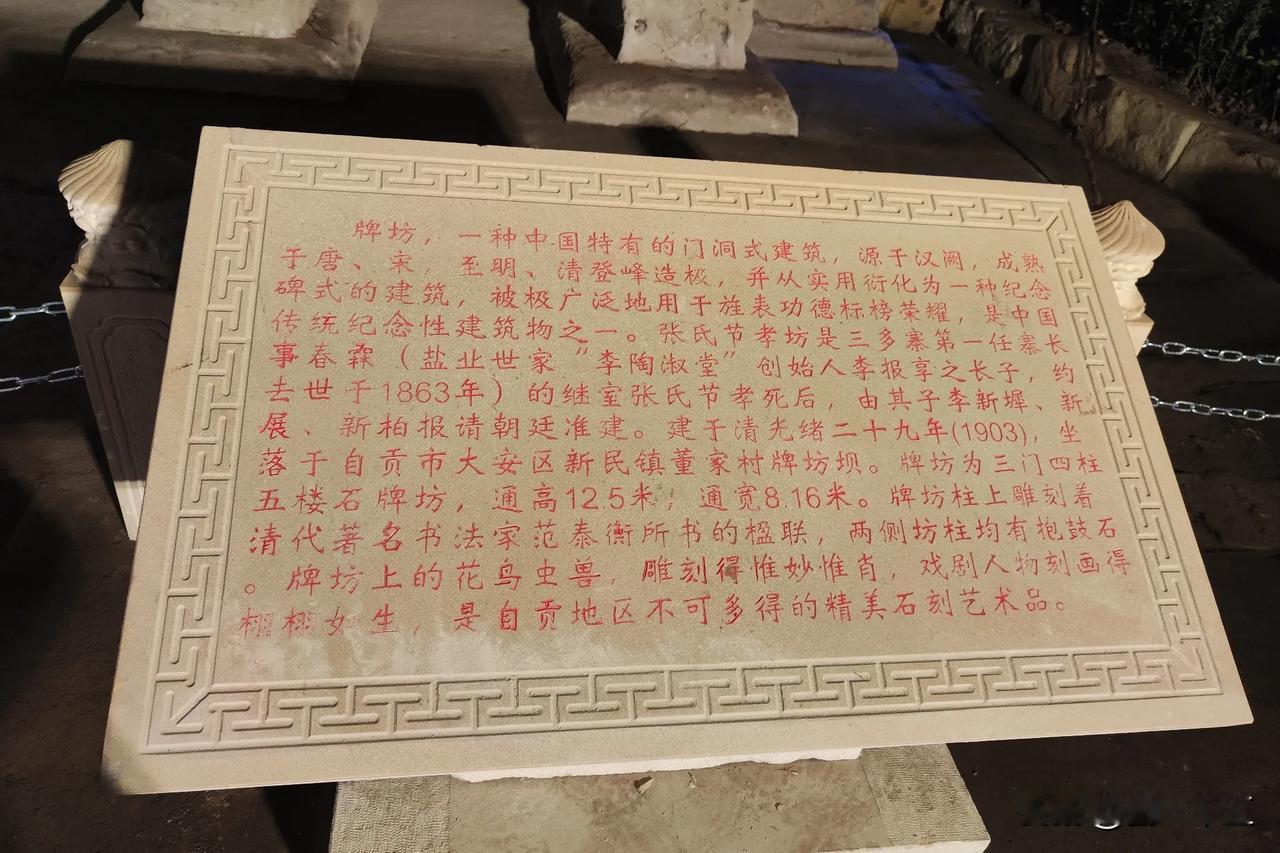 牌坊，一种中国特有的门洞式建筑，源于汉阙，成熟
于唐、宋，至明、清登峰造极，并从实用衍化为一种纪念
碑式的建筑，被极广泛地用于旌表功德标榜荣耀，是中国
传统纪念性建筑物之一。张氏节孝坊是三多寨第一任寨长
事春霖（盐业世家“李陶淑堂”创始人李报享之长子，约
去世于1863年）的继室张氏节孝死后，由其子李新墀、新
展、新柏报请朝廷准建。建于清光绪二十九年(1903)，坐
落于自贡市大安区新民镇董家村牌坊坝。牌坊为三门四柱
五楼石牌坊，通高12.5米，通宽8.16米。牌坊柱上雕刻着
清代著名书法家范泰衡所书的楹联，两侧坊柱均有抱鼓石
。牌坊上的花鸟虫兽，雕刻得惟妙惟肖，戏剧人物刻画得
栩栩如生，是自贡地区不可多得的精美石刻艺术品。